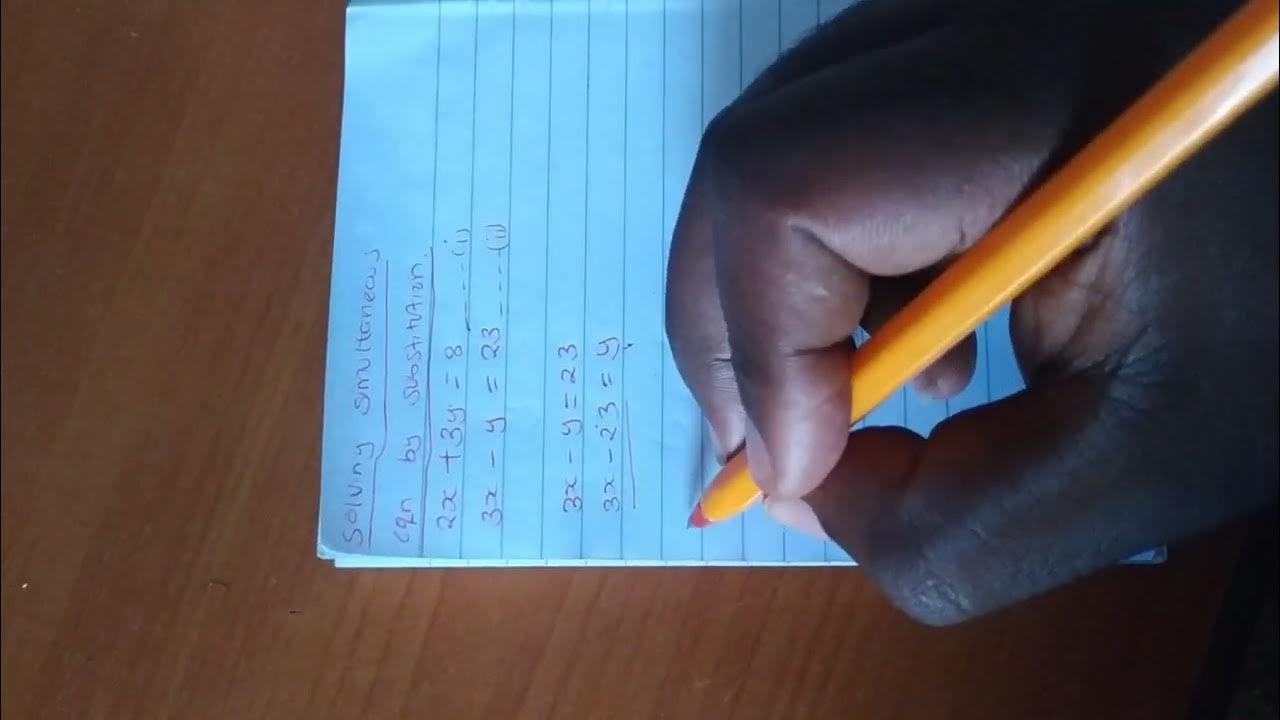 Solving simultaneous
eqn by substitution.
2x + 3y = 8 ----(i)
3x - y = 23 ----(ii)
3x - y = 23
3x - 23 = y